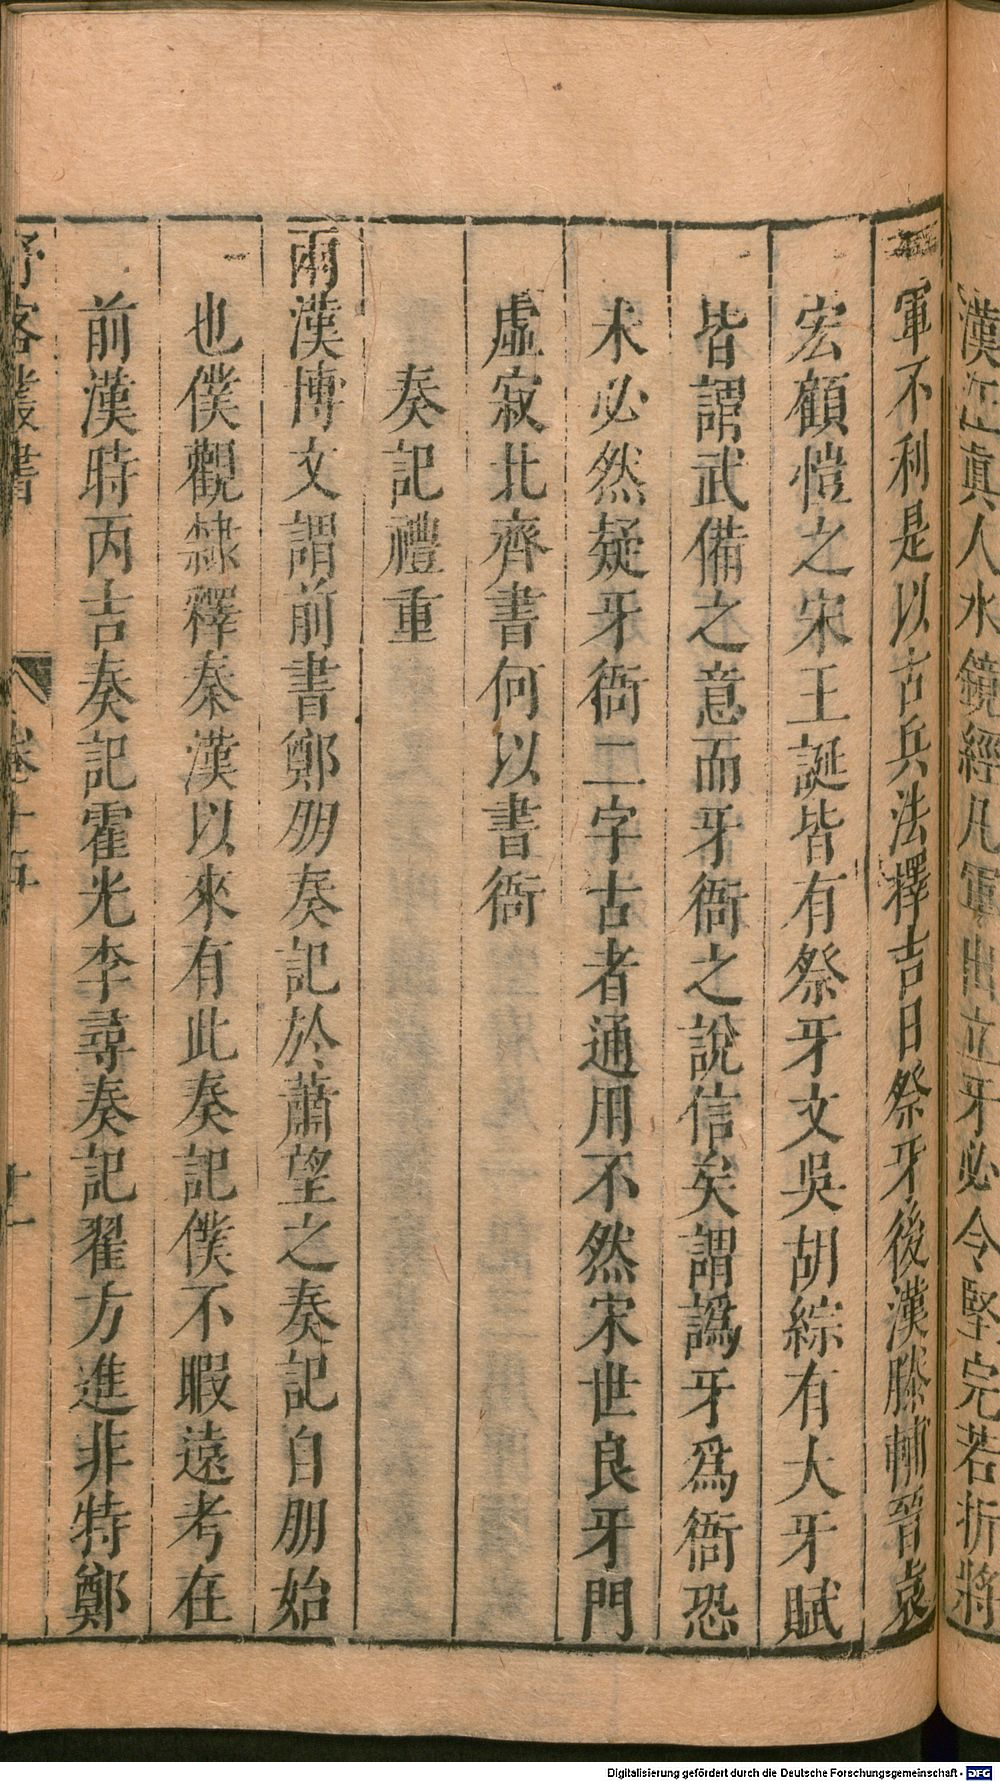 漢武眞人水鏡經凡軍出立牙必令堅完若折將
軍不利是以古兵法擇吉日祭牙後漢滕輔晉袁
宏顧愷之宋王誕皆有祭牙文吳胡綜有大牙賦
皆謂武備之意而牙衙之說信矣謂譌牙爲衙恐
未必然疑牙衙二字古者通用不然宋世良牙門
虛寂北齊書何以書衙
奏記禮重
兩漢博文謂前書鄭朋奏記於蕭望之奏記自朋始
也僕觀隸釋秦漢以來有此奏記僕不暇遠考在
前漢時丙吉奏記霍光李尋奏記翟方進非特鄭
野客叢書 卷十五 十一
Digitalisierung gefördert durch die Deutsche Forschungsgemeinschaft - DFG